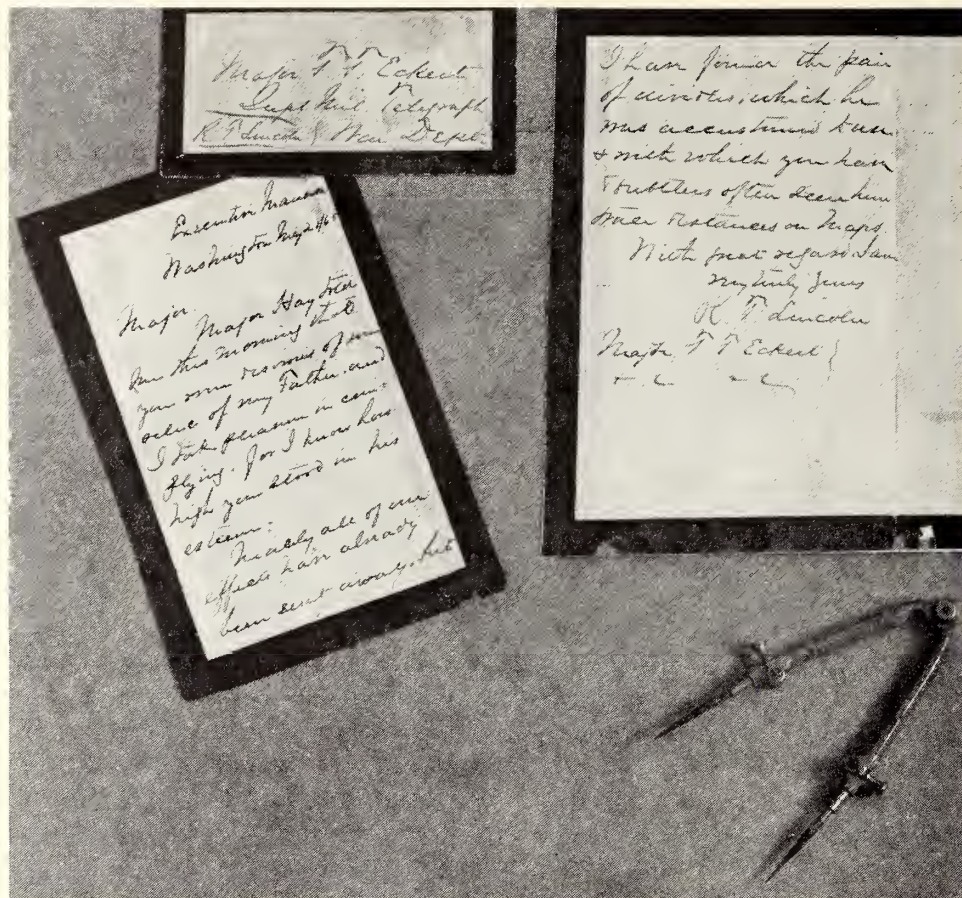 Major T. T. Eckert
Supt Mil. Telegraph
R. T. Lincoln War Dept.
Executive Mansion
Washington May 2 /65
Major.
Major Hay told
me this morning that
you were desirous of some
relic of my Father, and
I take pleasure in com-
plying, for I know how
high you stood in his
esteem.
Nearly all of our
effects have already
been sent away, but
I have found the pair
of dividers, which he
was accustomed to use
& with which you have
doubtless often seen him
trace distances on maps.
With great regard I am
very truly yours
R. T. Lincoln
Major T T Eckert